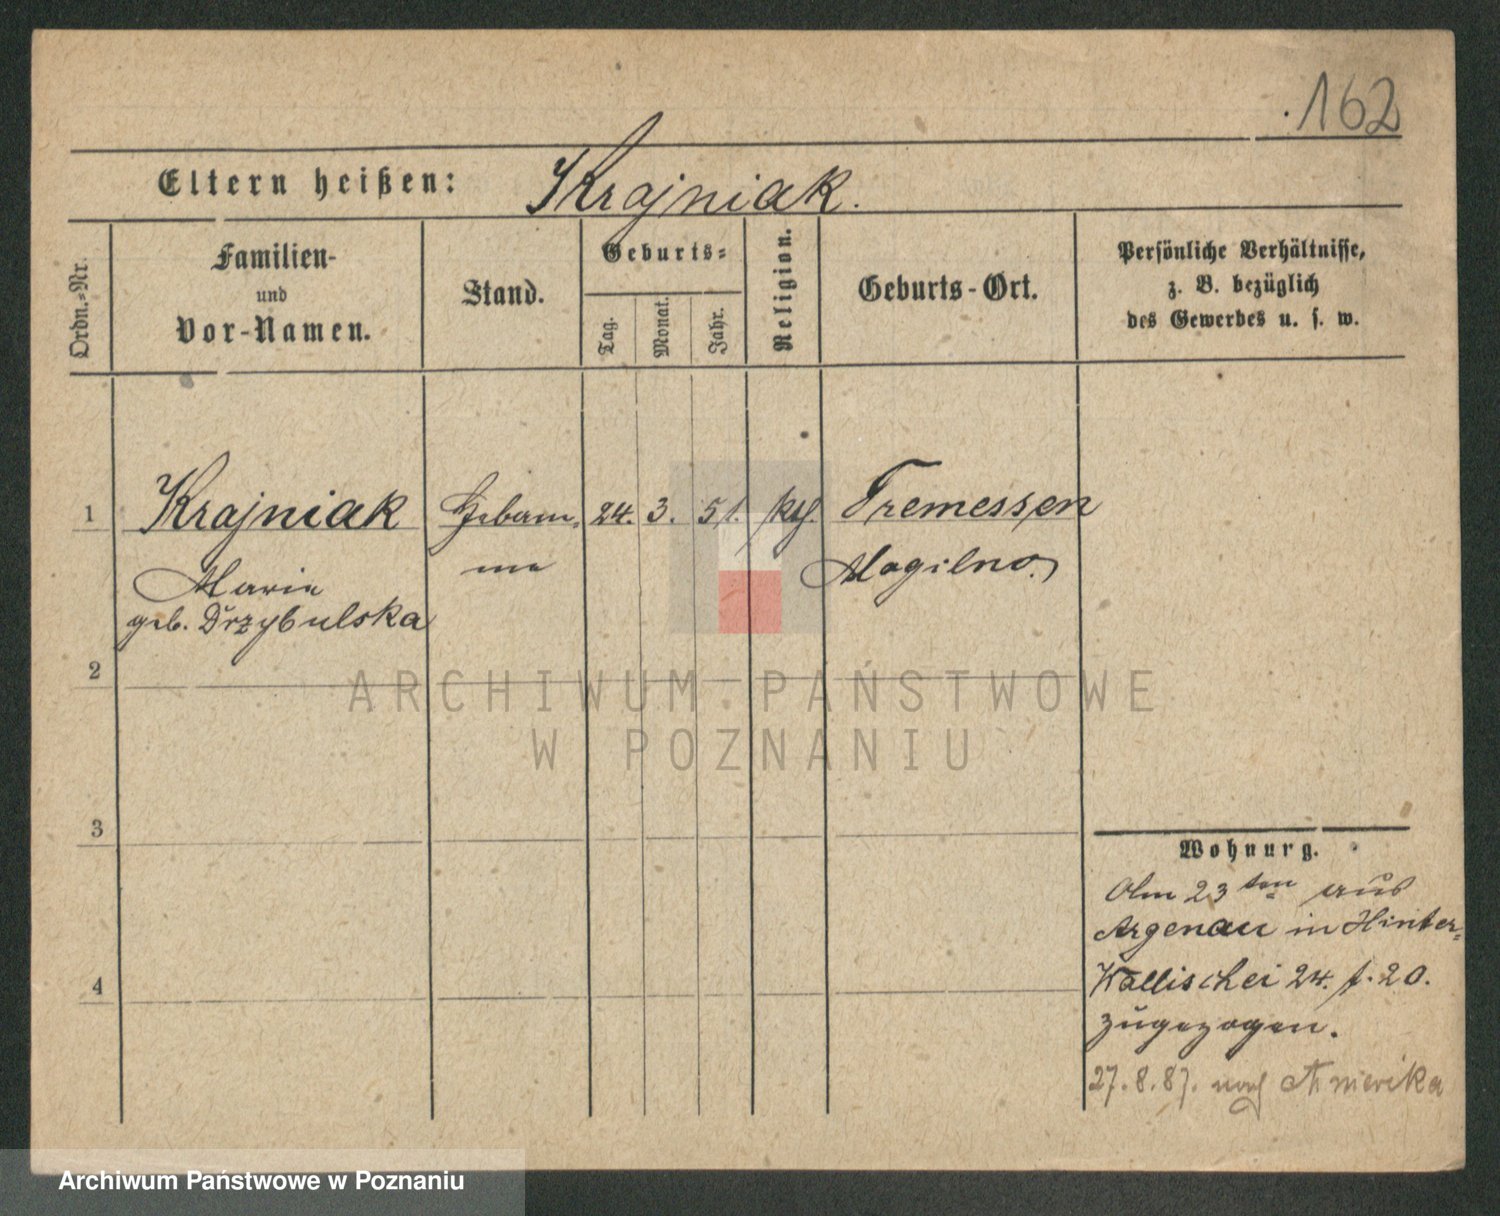 162
Eltern heißen: Krajniak.
Ordn.=Nr.
Familien-
und
Vor-Namen.
Stand.
Geburts=
Tag.
Monat.
Jahr.
Religion.
Geburts-Ort.
Persönliche Verhältnisse,
z. B. bezüglich
des Gewerbes u. s. w.
1 Krajniak Hebam= 24. 3. 51. kth. Tremessen
me Mogilno.
Marie
geb. Drzybulska
2
3
4
Wohnung.
Am 23ten aus
Argenau in Hinter=
Wallischei 24. f. 20.
zugezogen.
27.8.87. nach Amerika
ARCHIWUM PAŃSTWOWE
W POZNANIU
Archiwum Państwowe w Poznaniu